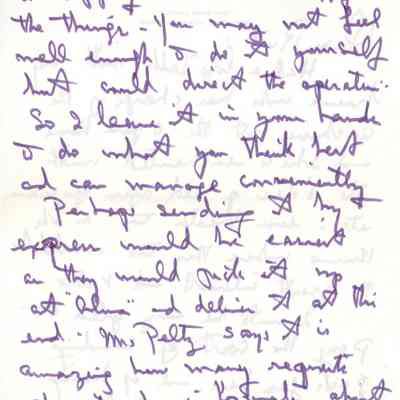 the things - You may not feel
well enough to do it yourself
but could direct the operation.
So I leave it in your hands
to do what you think best
and can manage conveniently
Perhaps sending it by
express would be easiest
as they would pick it up
at and deliver it at this
end. Mrs Peltz says it is
amazing how many requests
about